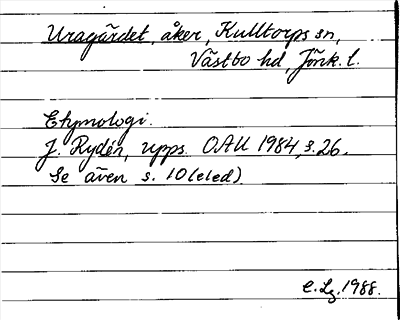 Uragärdet, åker, Kulltorps sn,
Västbo hd, Jönk. l.
Etymologi.
J. Rydén, upps. OAU 1984, s. 26.
Se även s. 10 (eled)
C. Lg. 1988.